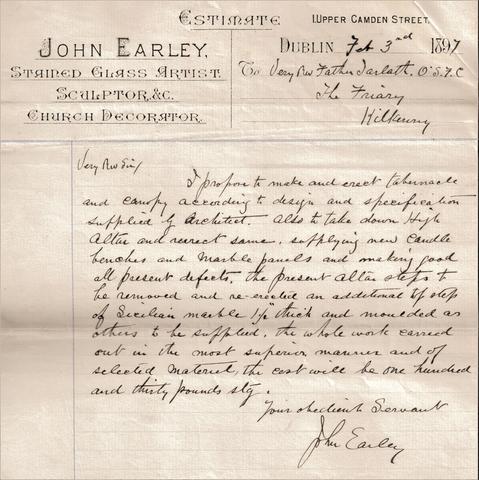 ESTIMATE
1 UPPER CAMDEN STREET.
JOHN EARLEY,
STAINED GLASS ARTIST
SCULPTOR, &C.
CHURCH DECORATOR.
DUBLIN Feb 3rd 1897
To Very Rev Father Jarlath. O.S.F.C
The Friary
Kilkenny
Very Rev Sir/
I propose to make and erect tabernacle
and canopy according to design and specification
supplied by Architect. Also to take down High
Altar and reerect same, supplying new Candle
benches and Marble panels and making good
all present defects. the present Altar steps to
be removed and re-erected an additional top step
of Sicilian marble thick and moulded as
others to be supplied. the whole work carried
out in the most superior manner and of
selected Material, the cost will be one hundred
and thirty pounds stg.
Your obedient Servant
John Earley